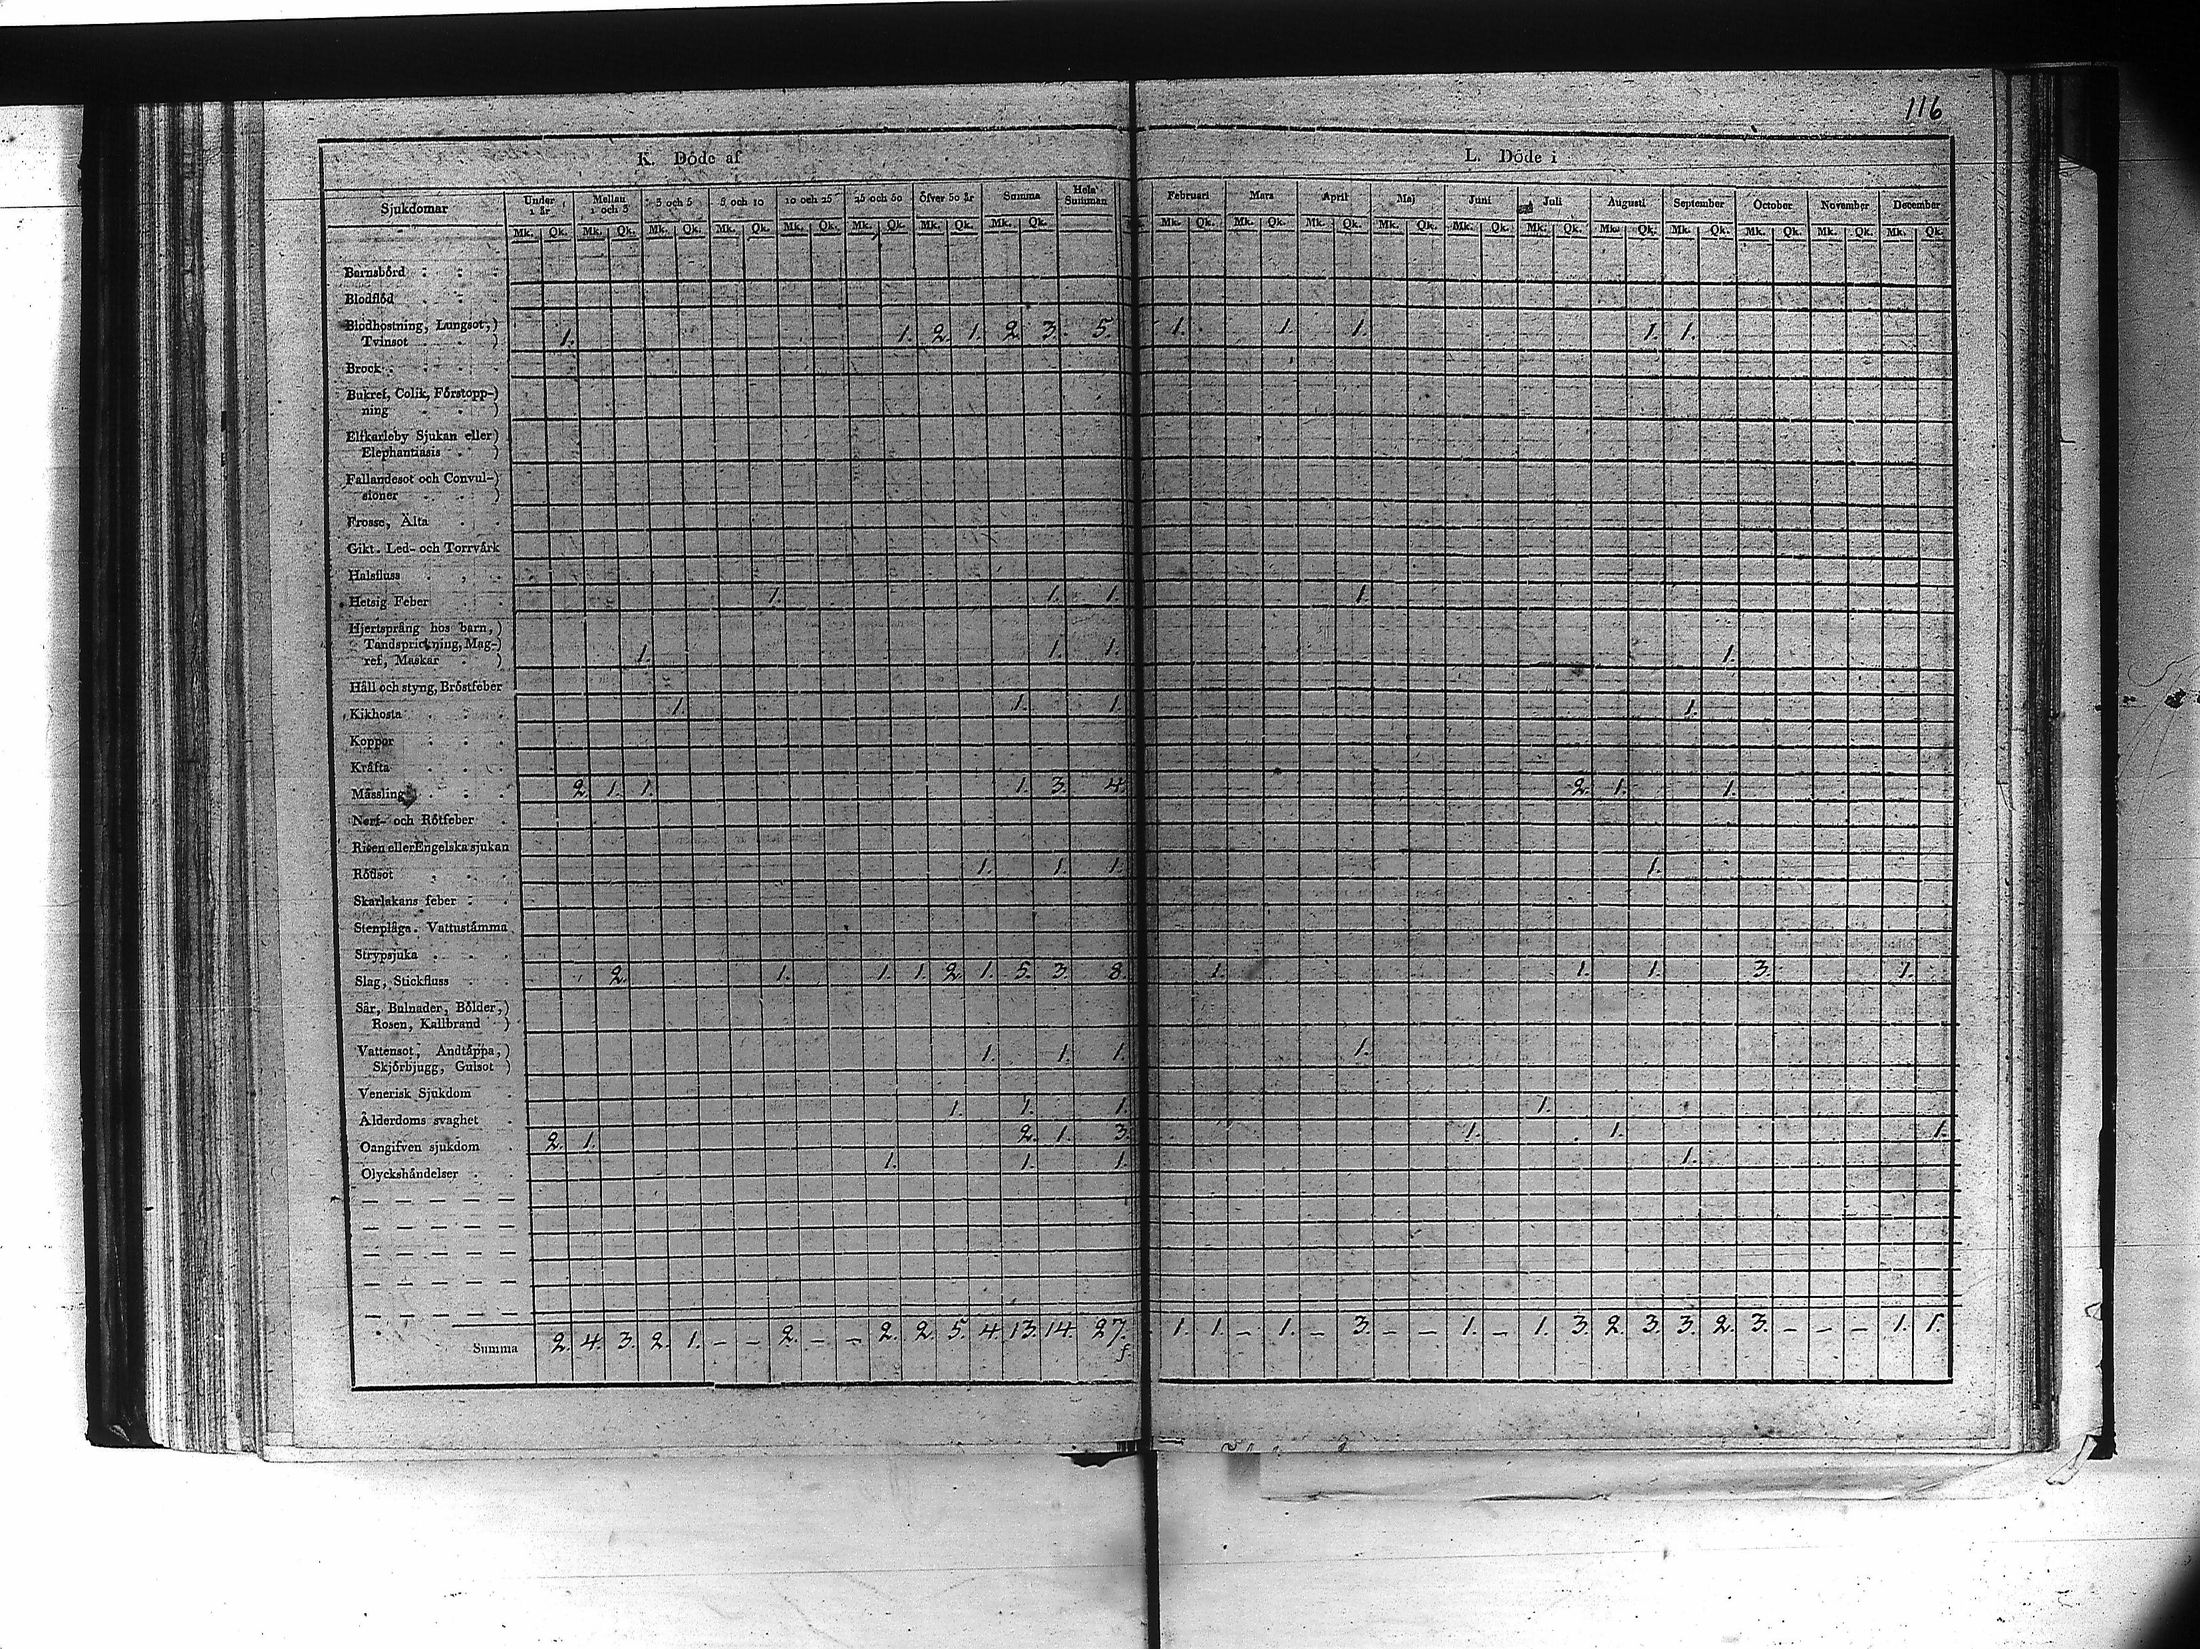 116
K. Döde af
L. Döde i
Sjukdomar Under 1 år Mellan 1 och 3 3 och 5 5 och 10 10 och 25 25 och 50 Öfver 50 år Summa Hela Summan Februari Mars April Maj Juni Juli Augusti September October November December
Mk. Qk. Mk. Qk. Mk. Qk. Mk. Qk. Mk. Qk. Mk. Qk. Mk. Qk. Mk. Qk. Mk. Qk. Mk. Qk. Mk. Qk. Mk. Qk. Mk. Qk. Mk. Qk. Mk. Qk. Mk. Qk. Mk. Qk. Mk. Qk. Mk. Qk.
Barnsbörd
Blodflöd
Blodhostning, Lungsot,)
Tvinsot ) 1. 1. 2. 1. 2. 3. 5. 1. 1. 1. 1. 1.
Brock
Bukref, Colik, Förstopp-)
ning )
Elfkarleby Sjukan eller)
Elephantiasis )
Fallandesot och Convul-)
sioner )
Frossa, Älta
Gikt. Led- och Torrvärk
Halsfluss
Hetsig Feber 1. 1. 1. 1.
Hjertsprång hos barn,)
Tandsprickning, Mag-)
ref, Maskar ) 1. 1. 1. 1.
Håll och styng, Bröstfeber
Kikhosta 1. 1. 1. 1.
Koppor
Kräfta
Mässling 2. 1. 1. 1. 3. 4. 2. 1. 1.
Nerf- och Rötfeber
Risen eller Engelska sjukan
Rödsot 1. 1. 1. 1.
Skarlakans feber
Stenplåga. Vattustämma
Strypsjuka
Slag, Stickfluss 2. 1. 1. 1. 2. 1. 5. 3. 8. 1. 1. 1. 3. 1.
Sår, Bulnader, Bölder,)
Rosen, Kallbrand )
Vattensot, Andtäppa,)
Skjörbjugg, Gulsot ) 1. 1. 1. 1.
Venerisk Sjukdom
Ålderdoms svaghet 1. 1. 1. 1.
Oangifven sjukdom 2. 1. 2. 1. 3. 1. 1. 1.
Olyckshändelser 1. 1. 1. 1.
Summa 2. 4. 3. 2. 1. – – 2. – – 2. 2. 5. 4. 13. 14. 27. – 1. 1. – 1. – 3. – – 1. – 1. 3. 2. 3. 3. 2. 3. – – – 1. 1.